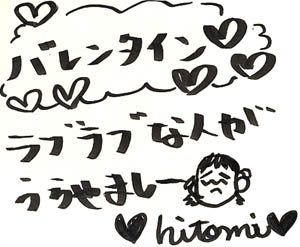 バレンタイン
ラブラブな人が
うらやましー
hitomi